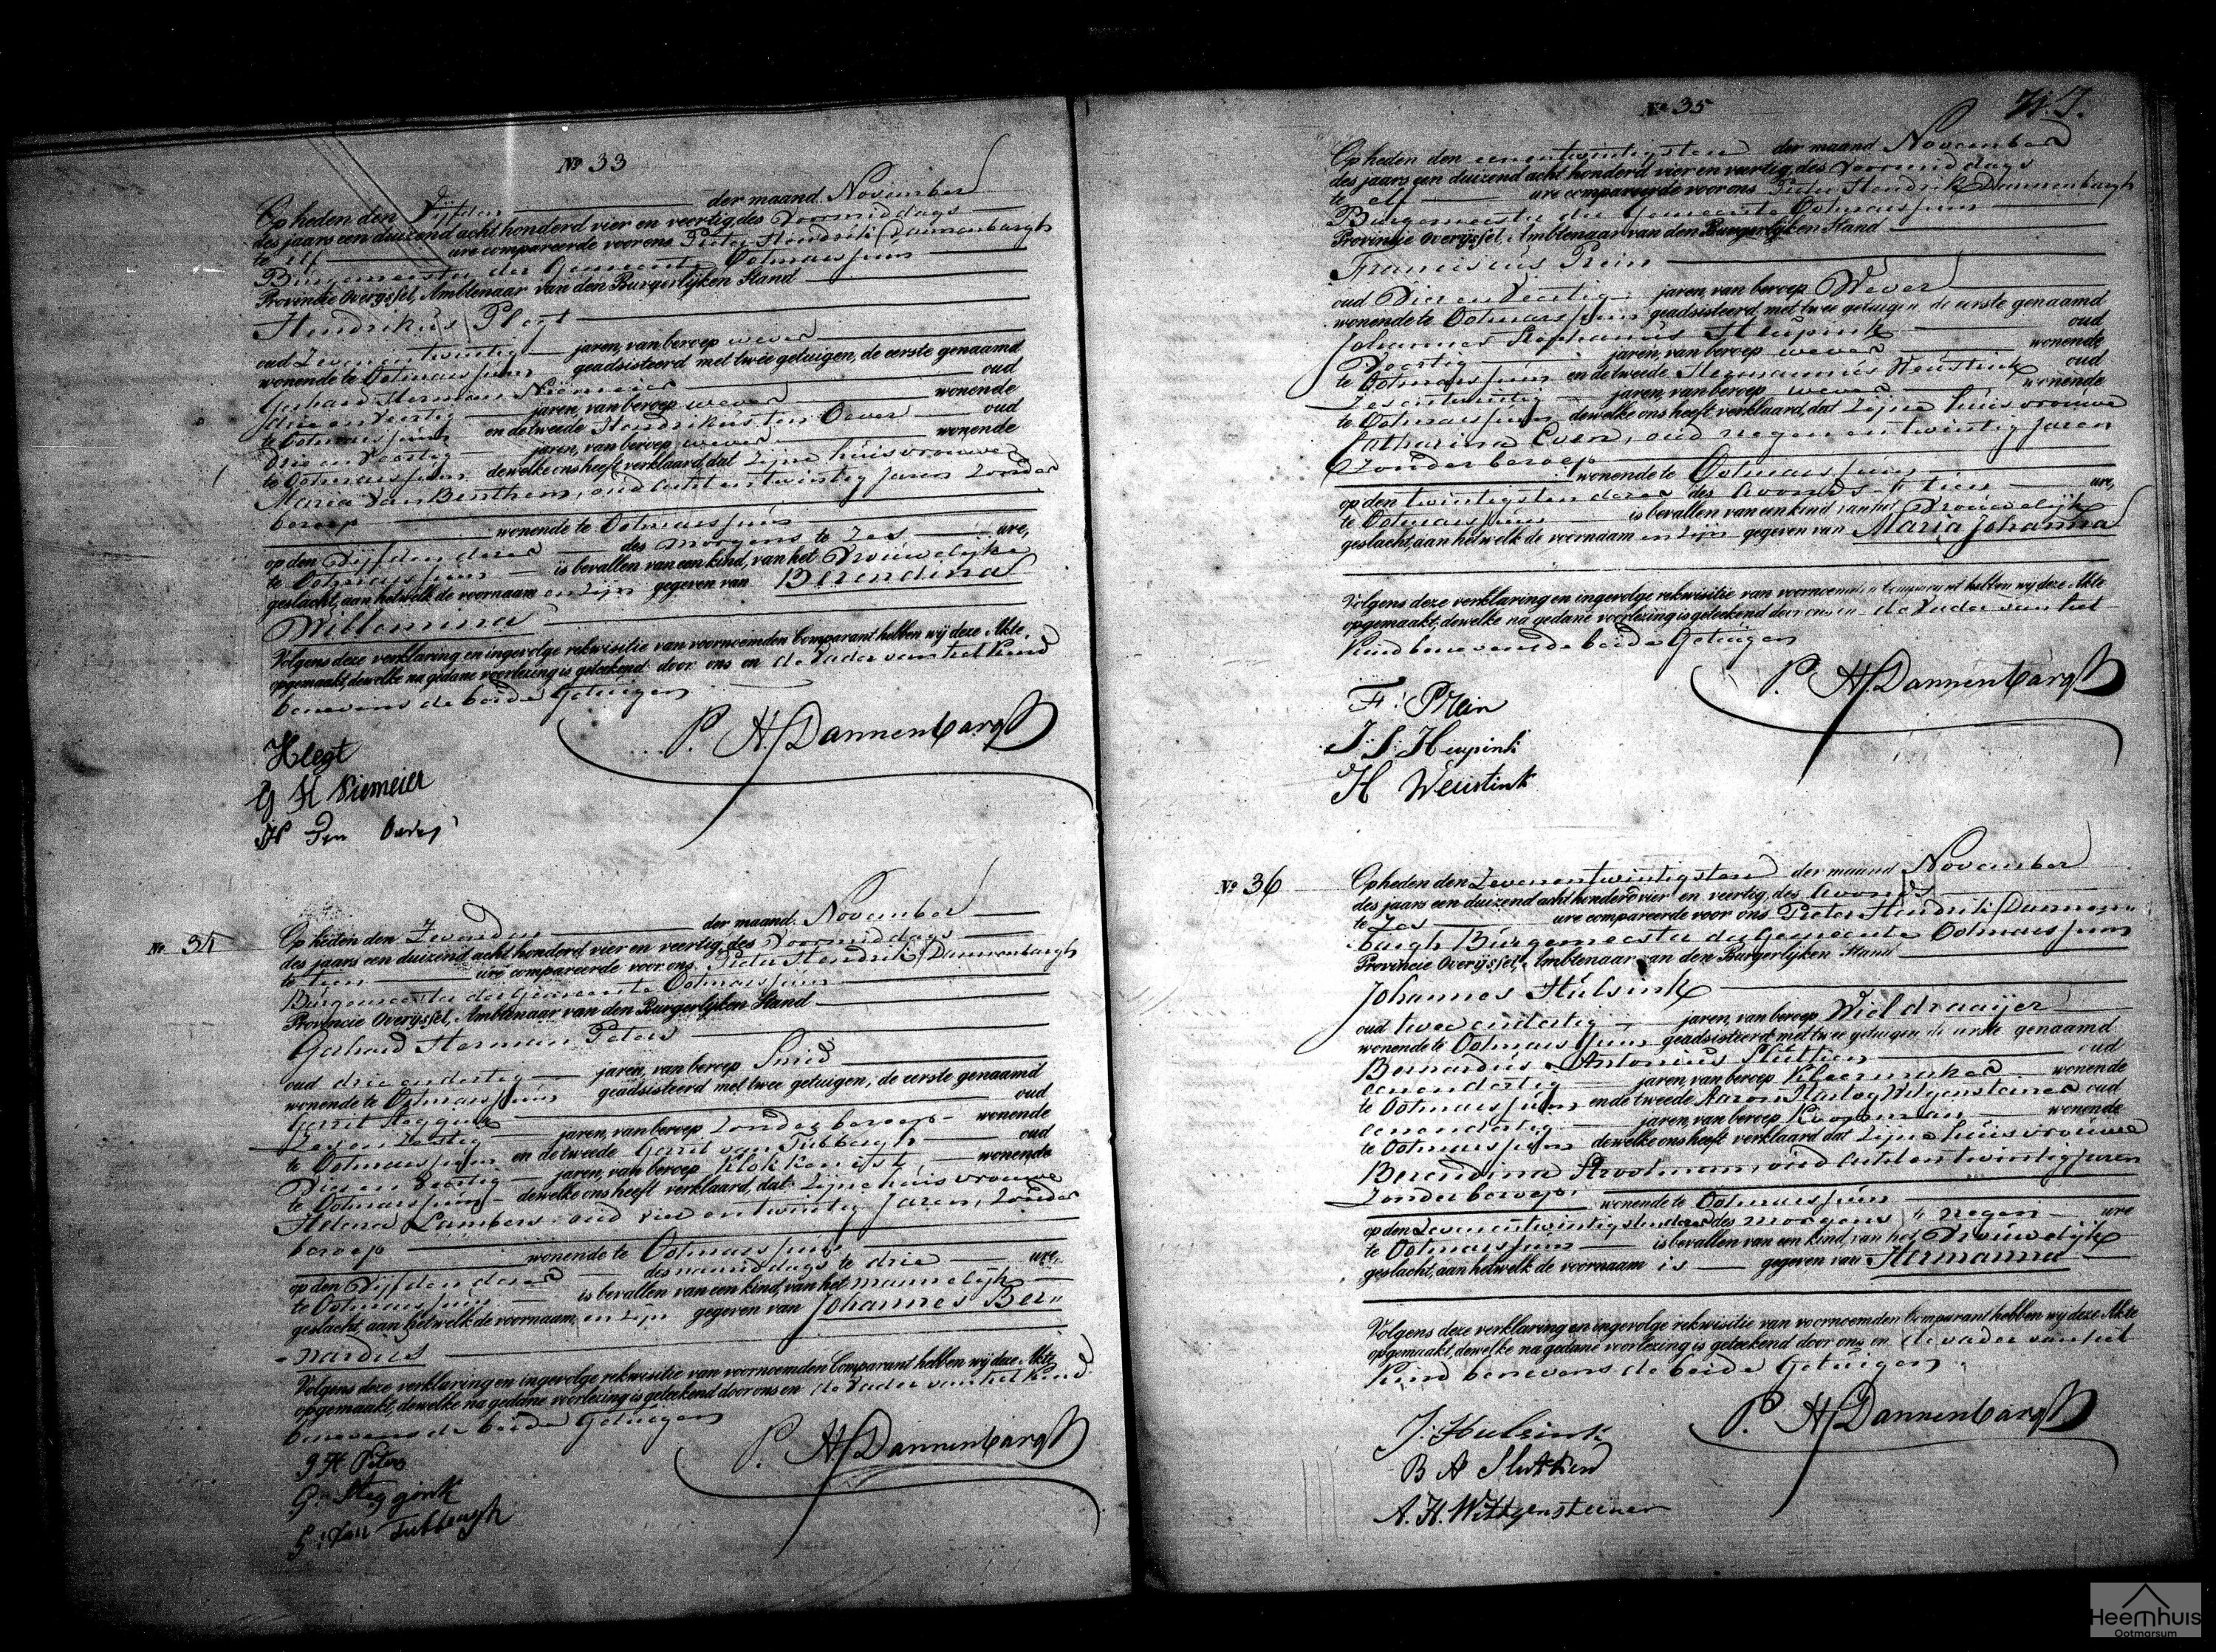 Nº 33
Op heden den Vijfden der maand November
des jaars een duizend acht honderd vier en veertig, des Voormiddags
te elf ure compareerde voor ons Pieter Hendrik Dannenbargh
Burgemeester der Gemeente Ootmarssum
Provincie Overijssel, Ambtenaar van den Burgerlijken Stand
Hendrikus Plegt
oud Zeven en twintig jaren, van beroep wever
wonende te Ootmarssum geadsisteerd met twee getuigen, de eerste genaamd
Gerhard Herman Niemeier oud
drie en Veertig jaren, van beroep wever wonende
te Ootmarssum en de tweede Hendrikus ten Oever oud
Drie en Veertig jaren, van beroep wever wonende
te Ootmarssum dewelke ons heeft verklaard, dat Zijne huisvrouwe
Maria van Benthem, oud Acht en twintig Jaren Zonder
beroep wonende te Ootmarssum
op den Vijfden dezer des morgens te Zes ure,
te Ootmarssum is bevallen van een kind, van het Vrouwelijke
geslacht, aan hetwelk de voornaam en zijn gegeven van Berendina
Willemina
Volgens deze verklaring en ingevolge rekwisitie van voornoemden Comparant hebben wij deze Akte
opgemaakt, dewelke na gedane voorlezing is geteekend door ons en de Vader van het Kind
benevens de beide Getuigen
P. H. Dannenbargh
H Plegt
G H Niemeier
H Ten Oever
Nº 34
Op heden den Zevenden der maand November
des jaars een duizend acht honderd vier en veertig, des Voormiddags
te tien ure compareerde voor ons Pieter Hendrik Dannenbargh
Burgemeester der Gemeente Ootmarssum
Provincie Overijssel, Ambtenaar van den Burgerlijken Stand
Gerhard Herman Peters
oud drie en dertig jaren, van beroep Smid
wonende te Ootmarssum geadsisteerd met twee getuigen, de eerste genaamd
Gerrit Steggink oud
Zes en Zestig jaren, van beroep Zonder beroep wonende
te Ootmarssum en de tweede Gerrit van Tubbergh oud
Vier en Veertig jaren, van beroep Klokkenist wonende
te Ootmarssum dewelke ons heeft verklaard, dat Zijne huisvrouwe
Helena Lambers oud vier en twintig Jaren, Zonder
beroep wonende te Ootmarssum
op den Vijfden dezer des namiddags te drie ure,
te Ootmarssum is bevallen van een kind, van het mannelijk
geslacht, aan hetwelk de voornaam en zijn gegeven van Johannes Ber„
nardus
Volgens deze verklaring en ingevolge rekwisitie van voornoemden Comparant hebben wij deze Akte
opgemaakt, dewelke na gedane voorlezing is geteekend door ons en de Vader van het Kind
benevens de beide Getuigen
P. H. Dannenbargh
G H Peters
G. Steggink
G: van Tubbergh
Nº 35
Op heden den eenentwintigsten der maand November
des jaars een duizend acht honderd vier en veertig, des Voormiddags
te elf ure compareerde voor ons Pieter Hendrik Dannenbargh
Burgemeester der Gemeente Ootmarssum
Provincie Overijssel, Ambtenaar van den Burgerlijken Stand
Franciscus Prein
oud Vier en Veertig jaren, van beroep Wever
wonende te Ootmarssum geadsisteerd met twee getuigen de eerste genaamd
Johannes Stephanus Heupink oud
Veertig jaren, van beroep wever wonende
te Ootmarssum en de tweede Hermannus Weustink oud
Zesentwintig jaren, van beroep wever wonende
te Ootmarssum dewelke ons heeft verklaard, dat Zijne huisvrouwe
Catharina Even, oud negen en twintig Jaren
Zonder beroep wonende te Ootmarssum
op den twintigsten dezer des Avonds te tien ure,
te Ootmarssum is bevallen van een kind van het Vrouwelijk
geslacht, aan hetwelk de voornaam en zijn gegeven van Maria Johanna
Volgens deze verklaring en ingevolge rekwisitie van voornoemden Comparant hebben wij deze Akte
opgemaakt, dewelke na gedane voorlezing is geteekend door ons en de Vader van het
Kind benevens de beide Getuigen
P. H. Dannenbargh
F: Prein
J: S: Heupink
H Weustink
Nº 36
Op heden den Zevenentwintigsten der maand November
des jaars een duizend acht honderd vier en veertig, des Avonds
te Zes ure compareerde voor ons Pieter Hendrik Dannen„
bargh Burgemeester der Gemeente Ootmarssum
Provincie Overijssel, Ambtenaar van den Burgerlijken Stand
Johannes Hulsink
oud twee en dertig jaren, van beroep Wieldraaijer
wonende te Ootmarssum geadsisteerd met twee getuigen de eerste genaamd
Bernardus Antonius Slutken oud
eenendertig jaren, van beroep Kleermaker wonende
te Ootmarssum en de tweede Aaron Hartog Witgensteiner oud
eenendertig jaren, van beroep Koopman wonende
te Ootmarssum dewelke ons heeft verklaard dat Zijne huisvrouwe
Berendina Kroolman oud Acht en twintig Jaren
Zonder beroep, wonende te Ootmarssum
op den Zevenentwintigsten dezer des morgens te negen ure
te Ootmarssum is bevallen van een kind, van het Vrouwelijk
geslacht, aan hetwelk de voornaam is gegeven van Hermanna
Volgens deze verklaring en ingevolge rekwisitie van voornoemden Comparant hebben wij deze Akte
opgemaakt, dewelke na gedane voorlezing is geteekend door ons en de vader van het
Kind benevens de beide Getuigen
P. H. Dannenbargh
J: Hulsink
B A Slutken
A. H. Wittgensteiner
Heemhuis
Ootmarsum